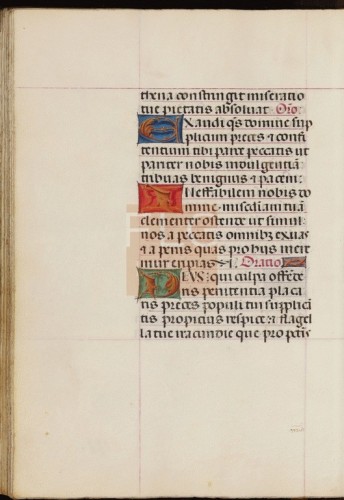 thena constringit miseratio
tue pietatis absoluat Oro
EXaudi q̄s domine sup
plicum preces ⁊ confi
tentium tibi parce peccatis ut
pariter nobis indulgentiā
tribuas benignus ⁊ pacem:
INeffabilem nobis do
mine misediam tuā
clementer ostende ut simul
nos a peccatis omnibꝫ exuas
⁊ a penis quas pro his mere
mur eripias Oratio
DEVS: qui culpa offēde
ris penitentia placa
ris preces populi tui supplicā
tis propicius respice: ⁊ flagel
la tue iracundie que pro pctis